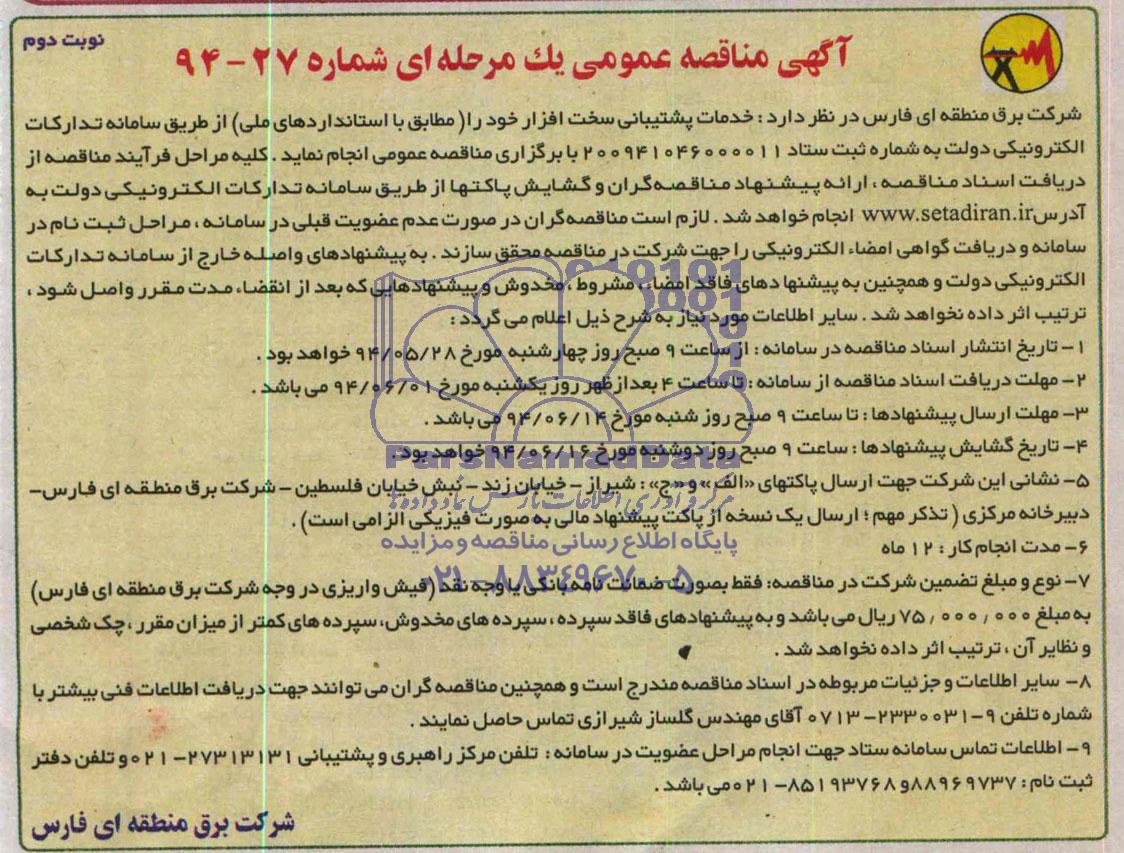 نوبت دوم
آگهی مناقصه عمومی یك مرحله ای شماره ۲۷-۹۴
شرکت برق منطقه ای فارس در نظر دارد : خدمات پشتیبانی سخت افزار خود را( مطابق با استانداردهای ملی) از طریق سامانه تدارکات
الکترونیکی دولت به شماره ثبت ستاد ۲۰۰۹۴۱۰۴۶۰۰۰۰۱۱ با برگزاری مناقصه عمومی انجام نماید . کلیه مراحل فرآیند مناقصه از
دریافت اسناد مناقصه ، ارائه پیشنهاد مناقصه‌گران و گشایش پاکتها از طریق سامانه تدارکات الکترونیکی دولت به
آدرس www.setadiran.ir انجام خواهد شد . لازم است مناقصه‌گران در صورت عدم عضویت قبلی در سامانه ، مراحل ثبت نام در
سامانه و دریافت گواهی امضاء الکترونیکی را جهت شرکت در مناقصه محقق سازند . به پیشنهادهای واصله خارج از سامانه تدارکات
الکترونیکی دولت و همچنین به پیشنها دهای فاقد امضاء ، مشروط ، مخدوش و پیشنهادهایی که بعد از انقضاء مدت مقرر واصل شود ،
ترتیب اثر داده نخواهد شد . سایر اطلاعات مورد نیاز به شرح ذیل اعلام می گردد :
۱- تاریخ انتشار اسناد مناقصه در سامانه : از ساعت ۹ صبح روز چهارشنبه مورخ ۹۴/۰۵/۲۸ خواهد بود .
۲- مهلت دریافت اسناد مناقصه از سامانه : تا ساعت ۴ بعدازظهر روز یکشنبه مورخ ۹۴/۰۶/۰۱ می باشد .
۳- مهلت ارسال پیشنهادها : تا ساعت ۹ صبح روز شنبه مورخ ۹۴/۰۶/۱۴ می باشد .
۴- تاریخ گشایش پیشنهادها : ساعت ۹ صبح روز دوشنبه مورخ ۹۴/۰۶/۱۶ خواهد بود.
ParsNamadData
۵- نشانی این شرکت جهت ارسال پاکتهای «الف» و «ج» : شیراز - خیابان زند - نبش خیابان فلسطین - شرکت برق منطقه ای فارس-
مرکز فرآوری اطلاعات پارس نماد داده‌ها
دبیرخانه مرکزی ( تذکر مهم ؛ ارسال یک نسخه از پاکت پیشنهاد مالی به صورت فیزیکی الزامی است) .
پایگاه اطلاع رسانی مناقصه و مزایده
۶- مدت انجام کار : ۱۲ ماه
۰۲۱-۸۸۳۴۹۶۷۰-۵
۷- نوع و مبلغ تضمین شرکت در مناقصه: فقط بصورت ضمانت نامه بانکی یا وجه نقد (فیش واریزی در وجه شرکت برق منطقه ای فارس)
به مبلغ ۷۵٫۰۰۰٫۰۰۰ ریال می باشد و به پیشنهادهای فاقد سپرده ، سپرده های مخدوش، سپرده های کمتر از میزان مقرر ، چک شخصی
و نظایر آن ، ترتیب اثر داده نخواهد شد .
۸- سایر اطلاعات و جزئیات مربوطه در اسناد مناقصه مندرج است و همچنین مناقصه گران می توانند جهت دریافت اطلاعات فنی بیشتر با
شماره تلفن ۹-۲۳۳۰۰۳۱-۰۷۱۳ آقای مهندس گلساز شیرازی تماس حاصل نمایند .
۹- اطلاعات تماس سامانه ستاد جهت انجام مراحل عضویت در سامانه : تلفن مرکز راهبری و پشتیبانی ۲۷۳۱۳۱۳۱-۰۲۱ و تلفن دفتر
ثبت نام : ۸۸۹۶۹۷۳۷ و ۸۵۱۹۳۷۶۸-۰۲۱ می باشد .
شرکت برق منطقه ای فارس